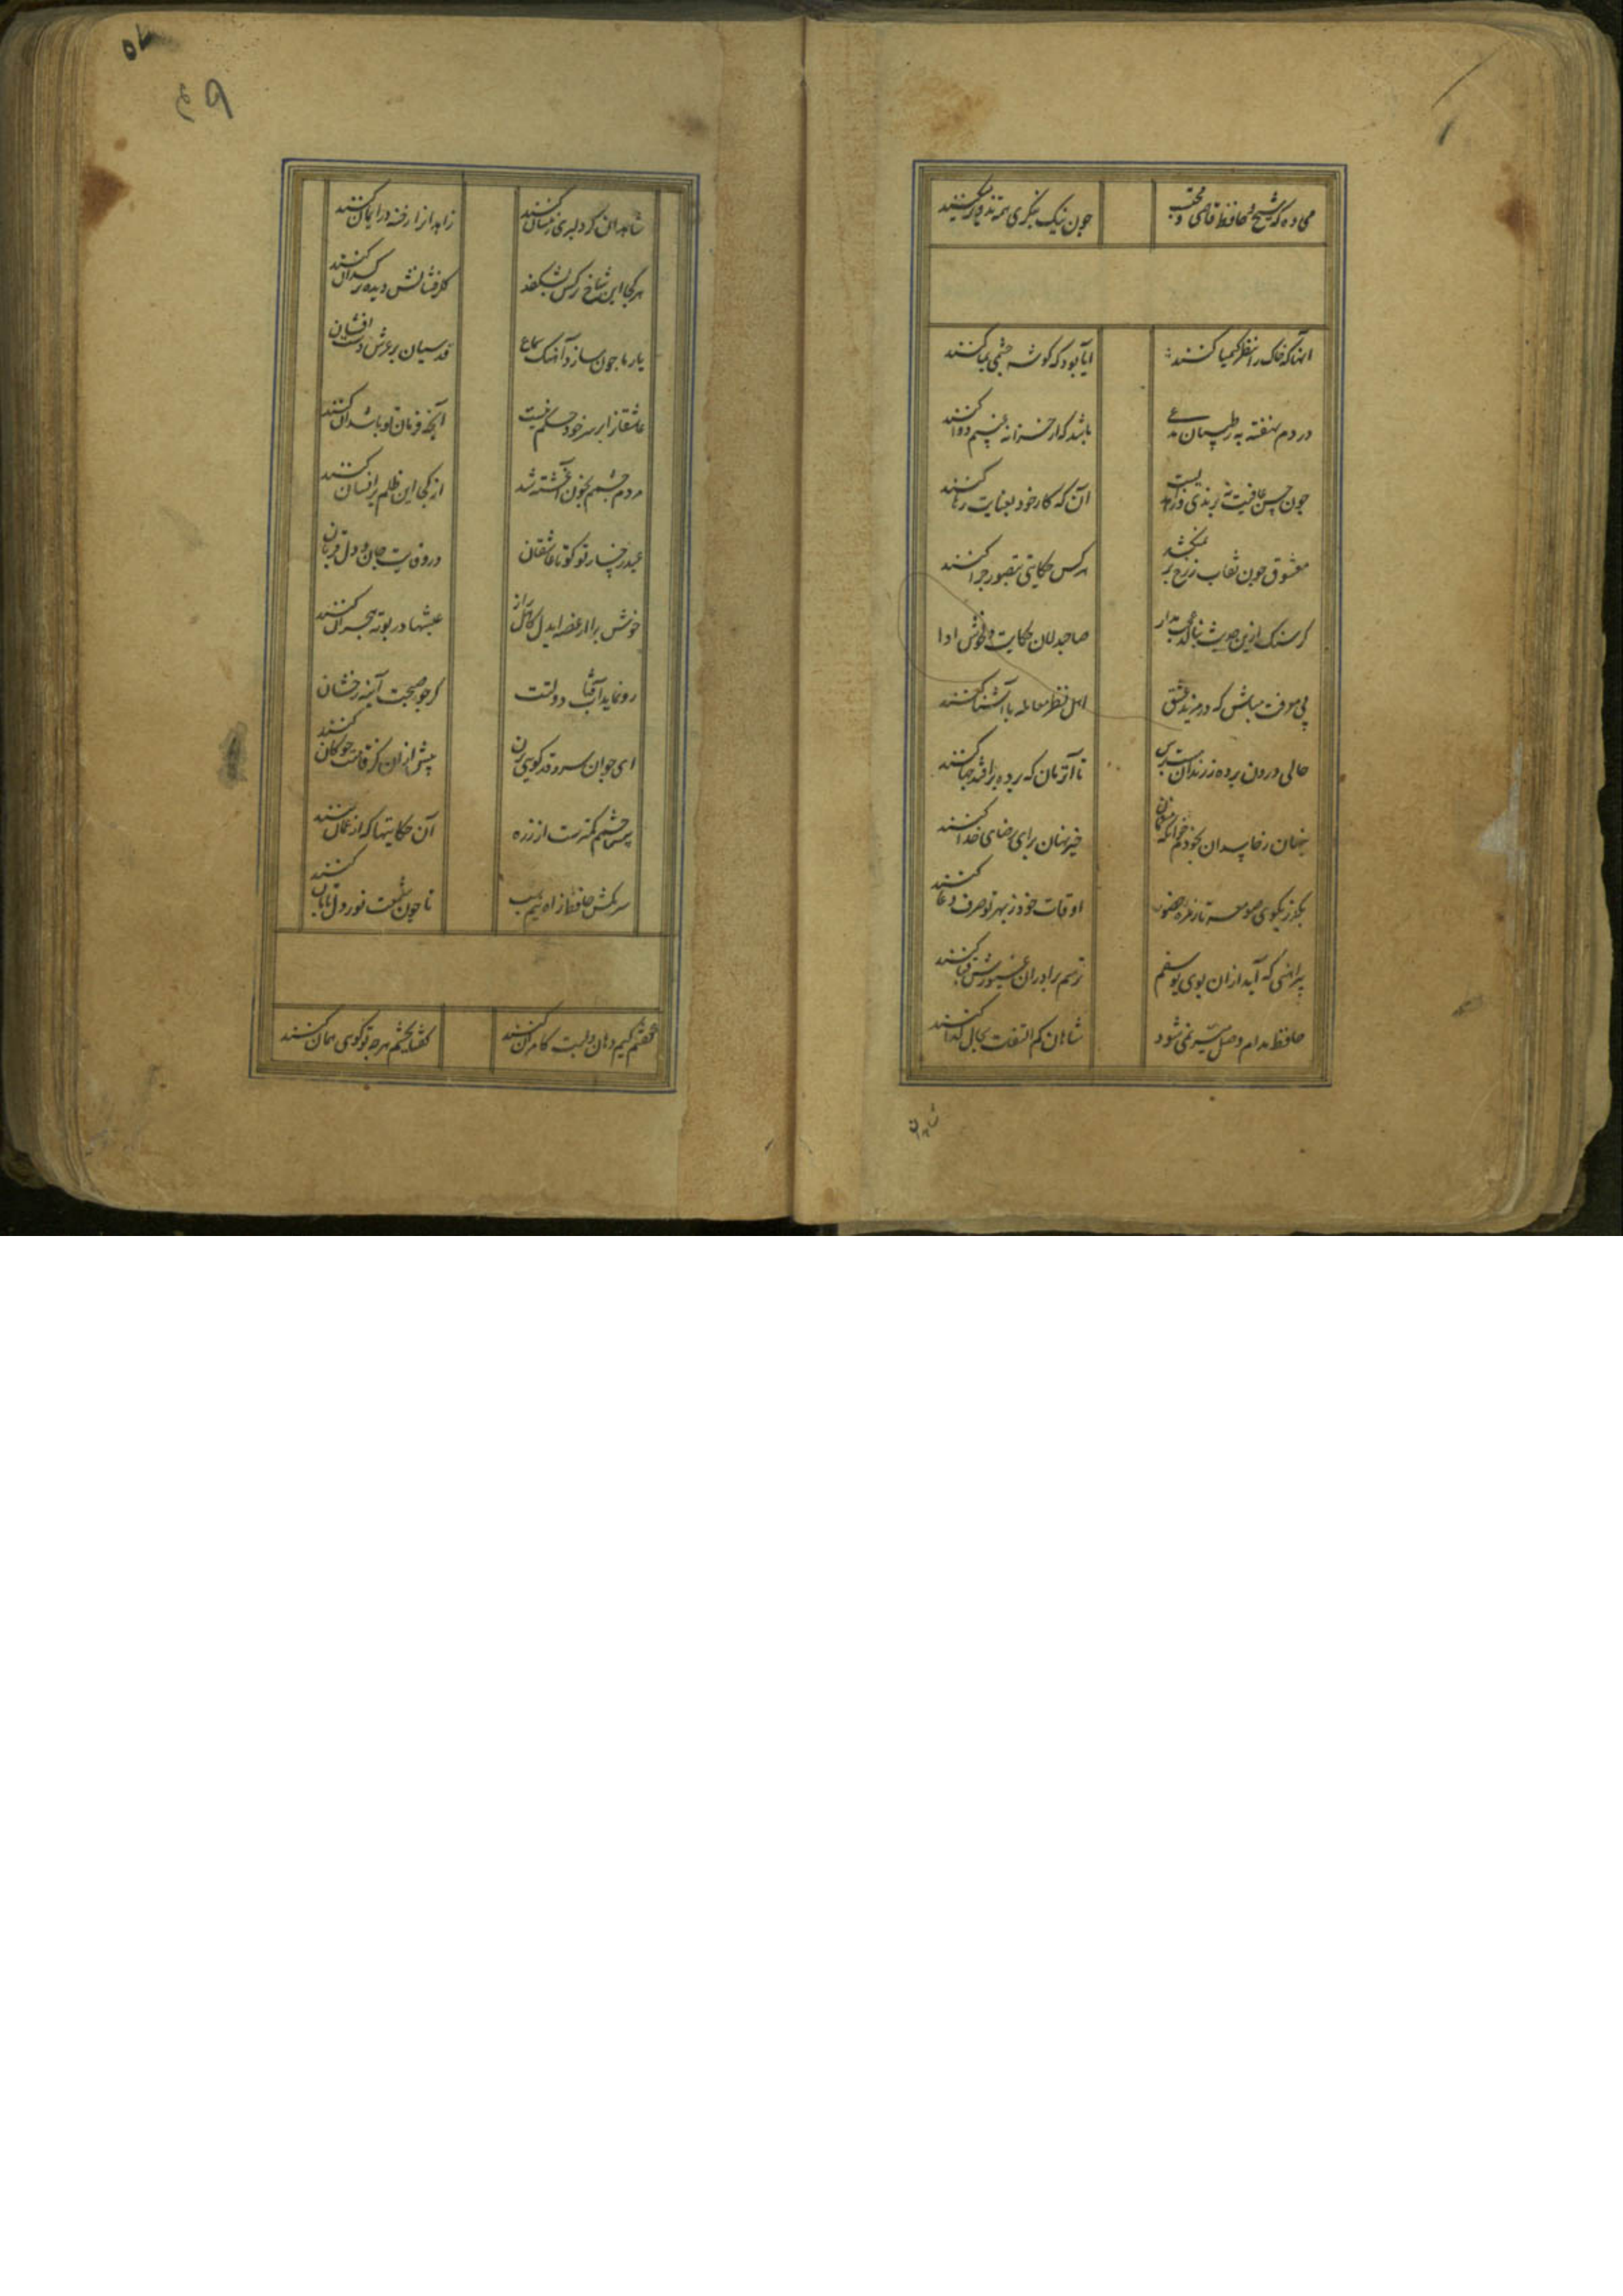 می ده که شیخ و حافظ و قاضی و محتسب
چون نیک بنگری همه تزویر میکنند
آنها که خاک را بنظر کیمیا کنند
آیا بود که گوشه چشمی بما کنند
دردم نهفته به ز طبیبان مدعی
باشد که از خزانه غیبم دوا کنند
چون حسن عاقبت نه برندی و زاهدیست
آن که کار خود بعنایت رها کنند
معشوق چون نقاب ز رخ بر نمیکشد
هر کس حکایتی بتصور چرا کنند
گر سنگ ازین حدیث بنالد عجب مدار
صاحبدلان حکایت دل خوش ادا
بی معرفت مباش که در من یزید عشق
اهل نظر معامله با آشنا کنند
حالی درون پرده ز رندان مپرس
تا آن زمان که پرده برافتد چها کنند
پنهان ز حاسدان بخودم خوان که منعمان
خیر نهان برای رضای خدا کنند
بگذر بکوی صومعه تا زمره حضور
اوقات خود ز بهر تو صرف دعا کنند
پیراهنی که آید ازان بوی یوسفم
ترسم برادران غیورش قبا کنند
حافظ مدام وصل میسر نمی شود
شاهان کم التفات بحال گدا کنند
شاهدان
شاهدان گر دلبری زینسان کنند
زاهدانرا رخنه در ایمان کنند
هر کجا این شاخ نرگس بشکفد
گلرخانش دیده نرگسدان کنند
یار ما چون سازد آهنگ سماع
قدسیان بر عرش دست افشان
عاشقانرا بر سر خود حکم نیست
آنچه فرمان تو باشد آن کنند
مردم چشمم بخون آغشته شد
از کجا این ظلم بر انسان کنند
عید رخسار تو کو تا عاشقان
در وفایت جان و دل قربان
خوش برا از غصه ای دل کاهل راز
عیشها در بوته هجران کنند
رو نماید آفتاب دولتت
گر چو صبحت آینه رخشان
ای جوان سرو قد گویی بزن
پیش ازان کز قامتت چوکان کنند
پیش چشمم کمترست از ذره
آن حکایتها که از عمان کنند
سر مکش حافظ ز آه نیم شب
تا چون صبحت نور دل تابان کنند
گفتم کیم دهان و لبت کامران کنند
گفتا بچشم هرچه تو گویی همان کنند